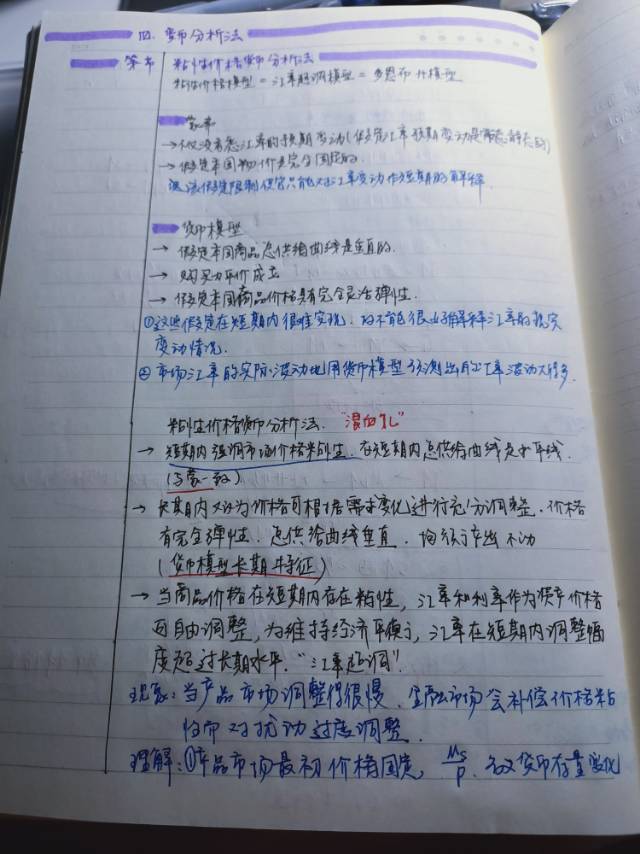 四. 货币分析法
第二节 粘性价格货币分析法
粘性价格模型 = 汇率超调模型 = 多恩布什模型
蒙-弗
→ 不仅没考虑汇率的预期变动(假定汇率预期变动是静态的)
→ 假定本国物价是完全固定的.
这些假定限制使它只能对汇率变动作短期的解释.
货币模型
→ 假定本国商品总供给曲线是垂直的.
→ 购买力平价成立
→ 假定本国商品价格具有完全灵活弹性.
①这些假定在短期内很难实现. 故不能很好解释汇率的现实
变动情况.
② 市场汇率的实际波动比用货币模型预测出的汇率波动大得多.
粘性价格货币分析法. "混血儿"
→ 短期内强调市场价格粘性. 在短期内总供给曲线是水平线.
(与蒙一致)
→ 长期内又认为价格可根据需求变化进行充分调整. 价格
有完全弹性. 总供给曲线垂直. 均衡产出不动
(货币模型长期特征)
→ 当商品价格在短期内存在粘性, 汇率和利率作为资产价格
可自由调整, 为维持经济平衡, 汇率在短期内调整幅
度超过长期水平. "汇率超调".
现象: 当产品市场调整得很慢. 金融市场会补偿价格粘
性而对扰动过度调整.
理解: ①产品市场最初价格固定, Ms/P. 名义货币存量变化